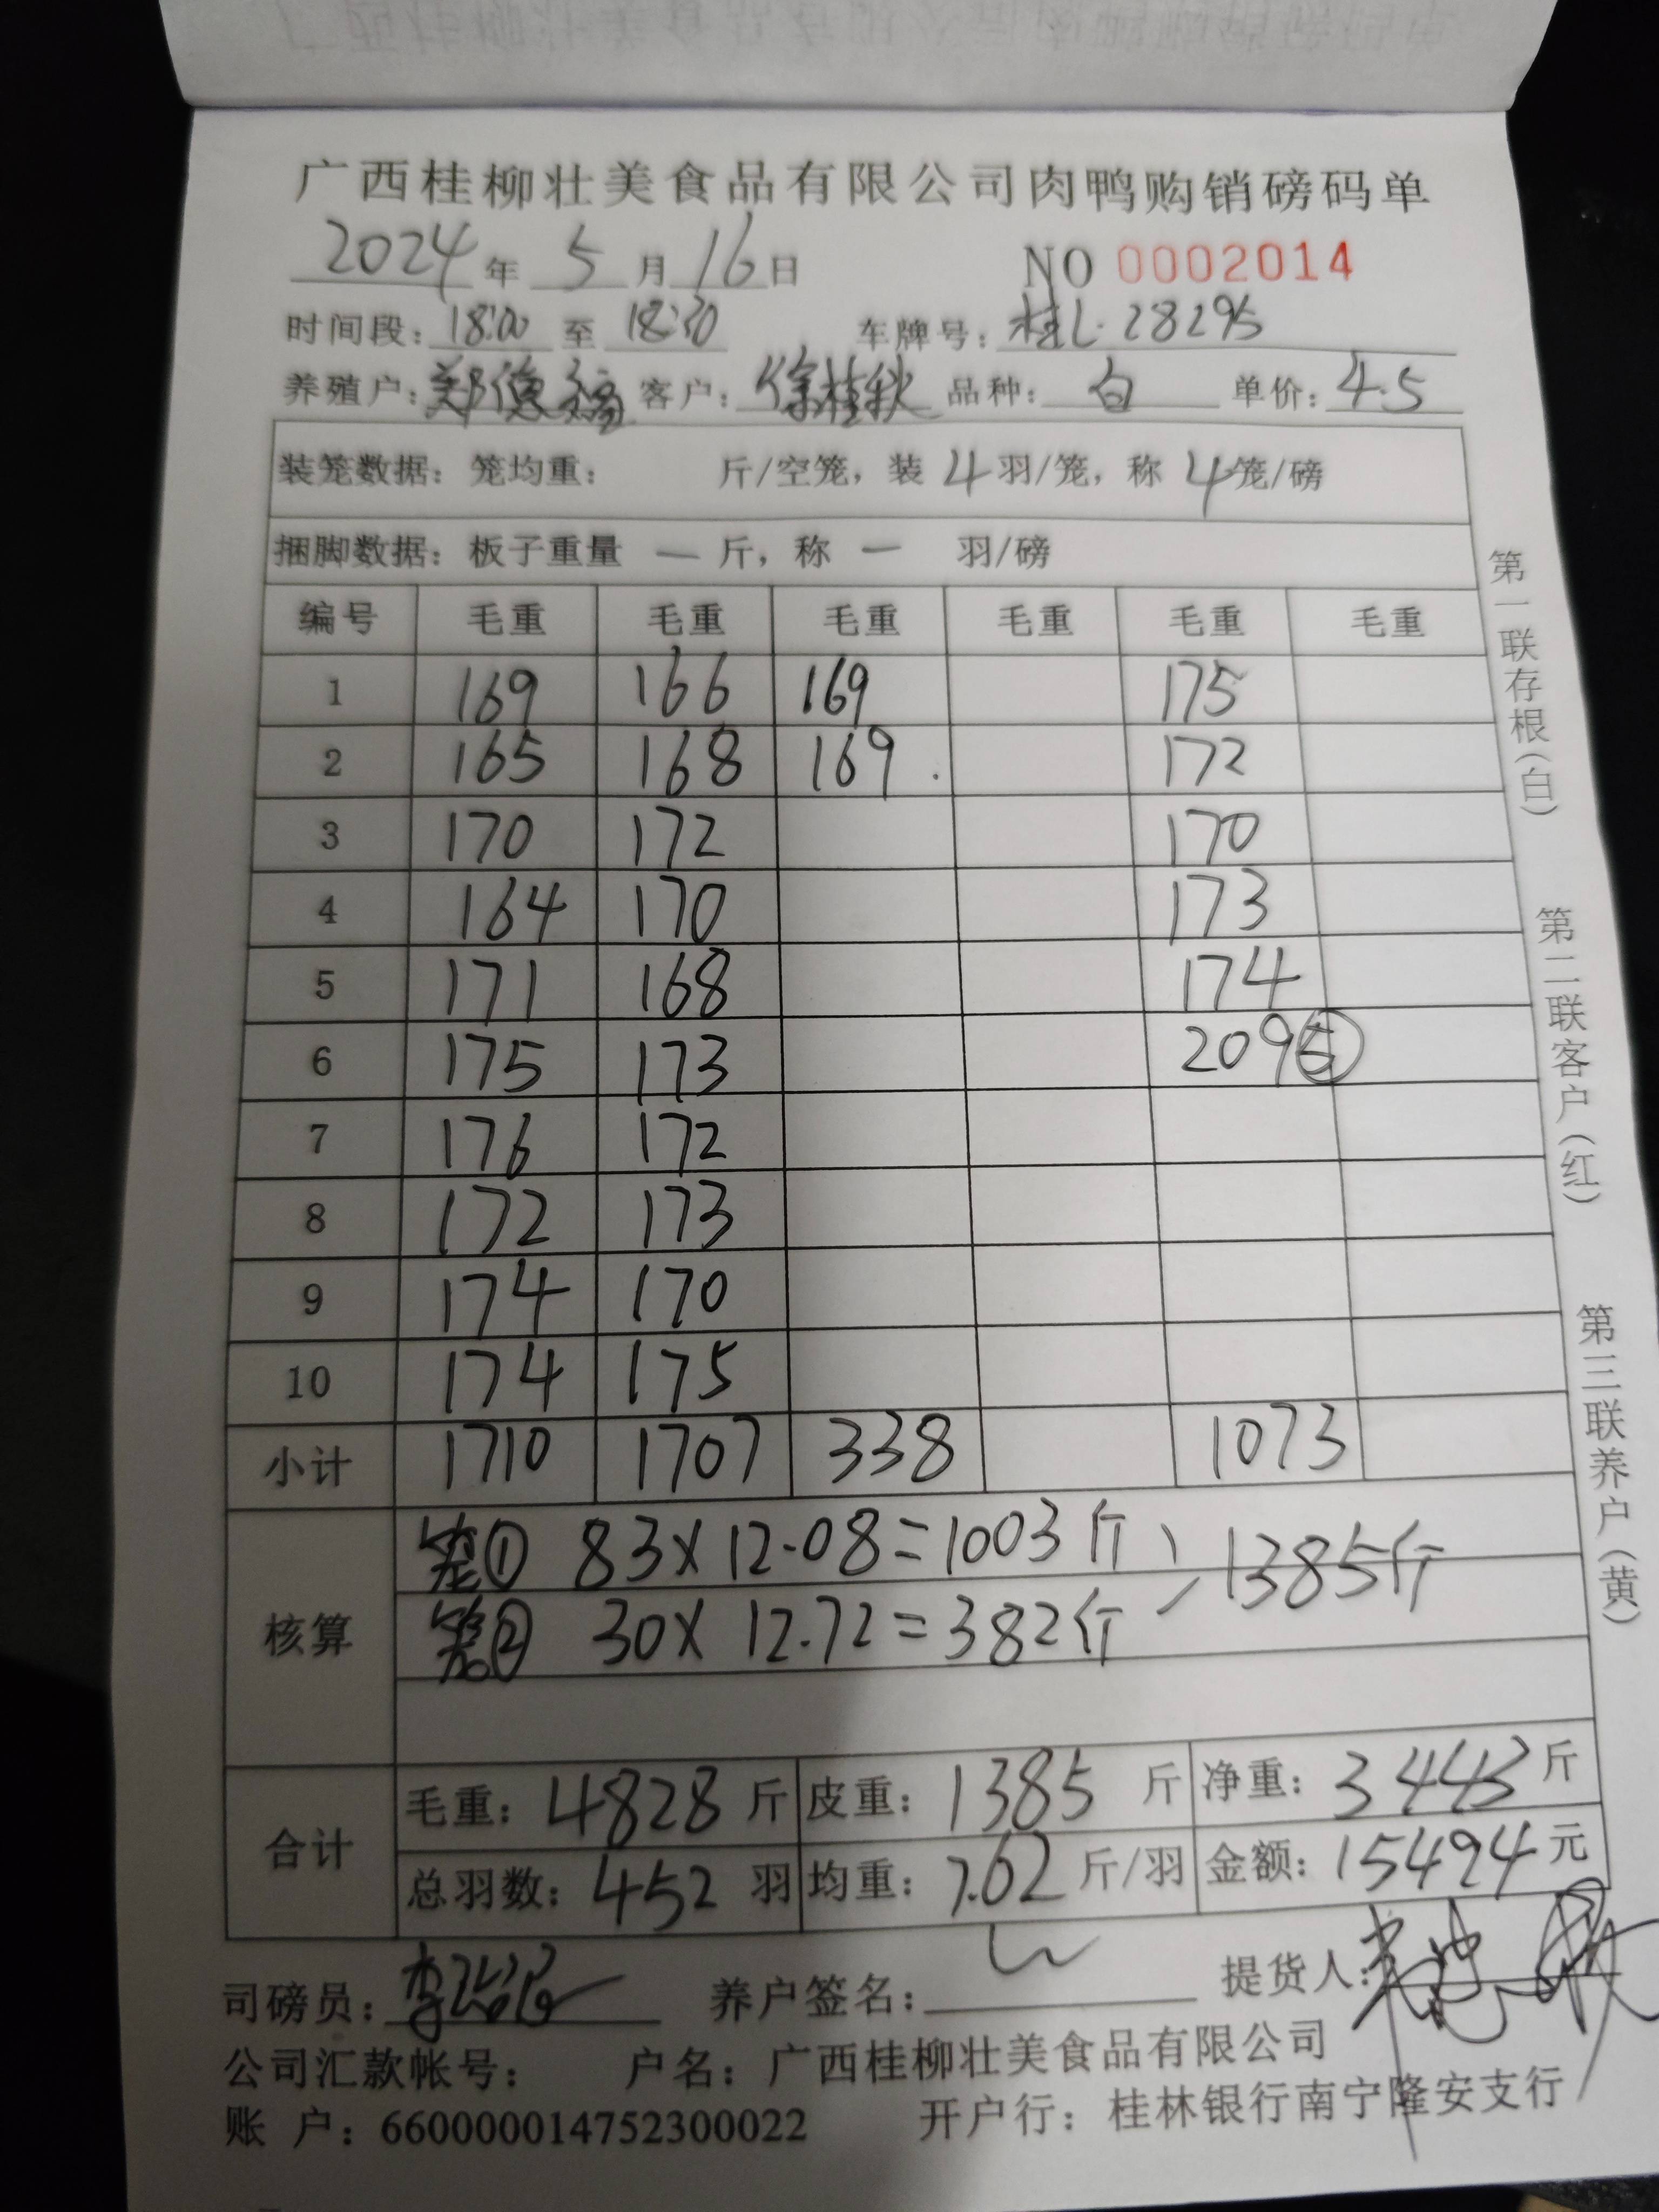 广西桂柳壮美食品有限公司肉鸭购销磅码单
2024年 5月16日 NO 0002014
时间段：18:00 至 18:30 车牌号：桂L·28295
养殖户：郑德福 客户：徐桂秋 品种：白 单价：4.5
装笼数据：笼均重： 斤/空笼，装 4 羽/笼，称 4 笼/磅
捆脚数据：板子重量 — 斤，称 — 羽/磅
编号 毛重 毛重 毛重 毛重 毛重 毛重
1 169 166 169 175
2 165 168 169. 172
3 170 172 170
4 164 170 173
5 171 168 174
6 175 173 209⑤
7 176 172
8 172 173
9 174 170
10 174 175
小计 1710 1707 338 1073
核算
笼① 83×12.08=1003斤 1385斤
笼② 30×12.72=382斤
合计
毛重：4828 斤 皮重：1385 斤 净重：3443 斤
总羽数：452 羽 均重：7.62 斤/羽 金额：15494 元
司磅员： 养户签名： 提货人：
公司汇款帐号： 户名：广西桂柳壮美食品有限公司
账 户：660000014752300022 开户行：桂林银行南宁隆安支行
第一联存根(白)
第二联客户(红)
第三联养户(黄)